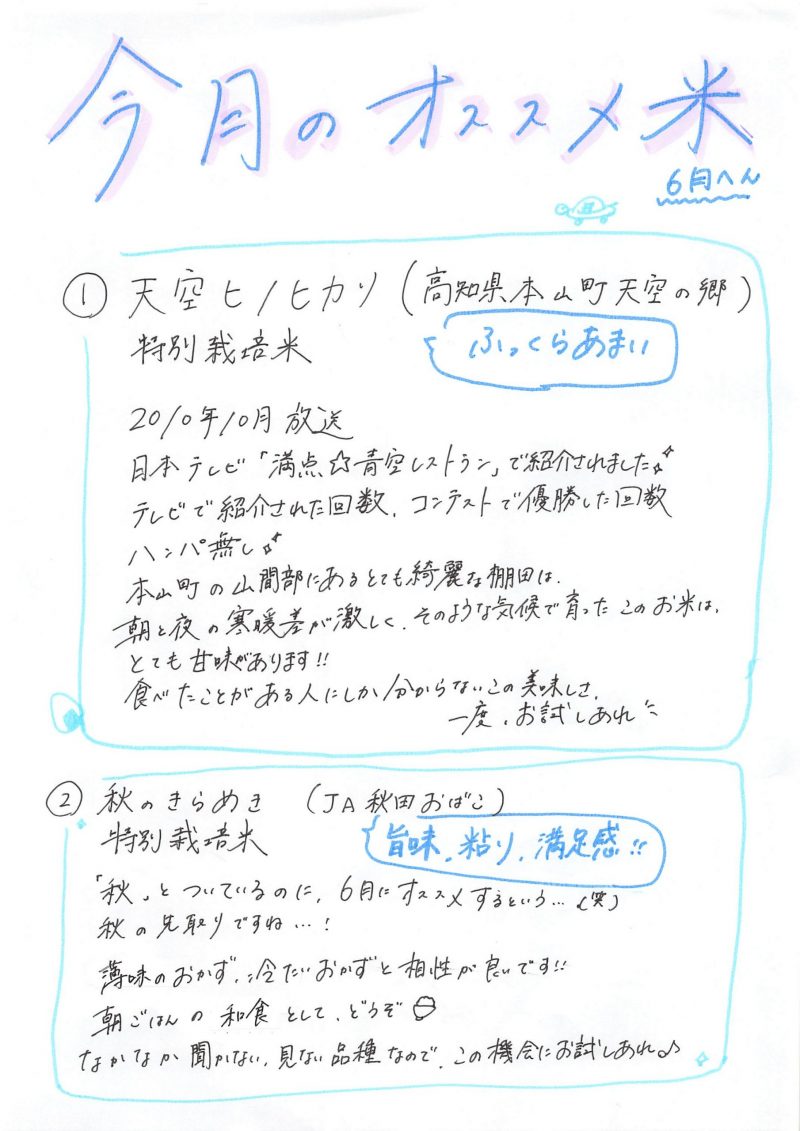 今月のオススメ米
6月へん
① 天空ヒノヒカリ (高知県本山町天空の郷)
特別栽培米
ふっくらあまい
2010年10月 放送
日本テレビ「満点☆青空レストラン」で紹介されました
テレビで紹介された回数、コンテストで優勝した回数
ハンパ無し
本山町の山間部にあるとても綺麗な棚田は、
朝と夜の寒暖差が激しく、そのような気候で育ったこのお米は、
とても甘味があります!!
食べたことがある人にしか分からないこの美味しさ、
一度、お試しあれ
② 秋のきらめき (JA秋田おばこ)
特別栽培米
旨味、粘り、満足感!!
「秋」とついているのに、6月にオススメするという…(笑)
秋の先取りですね…!
薄味のおかず、冷たいおかずと相性が良いです!!
朝ごはんの和食として、どうぞ
なかなか聞かない、見ない品種なので、この機会にお試しあれ♪